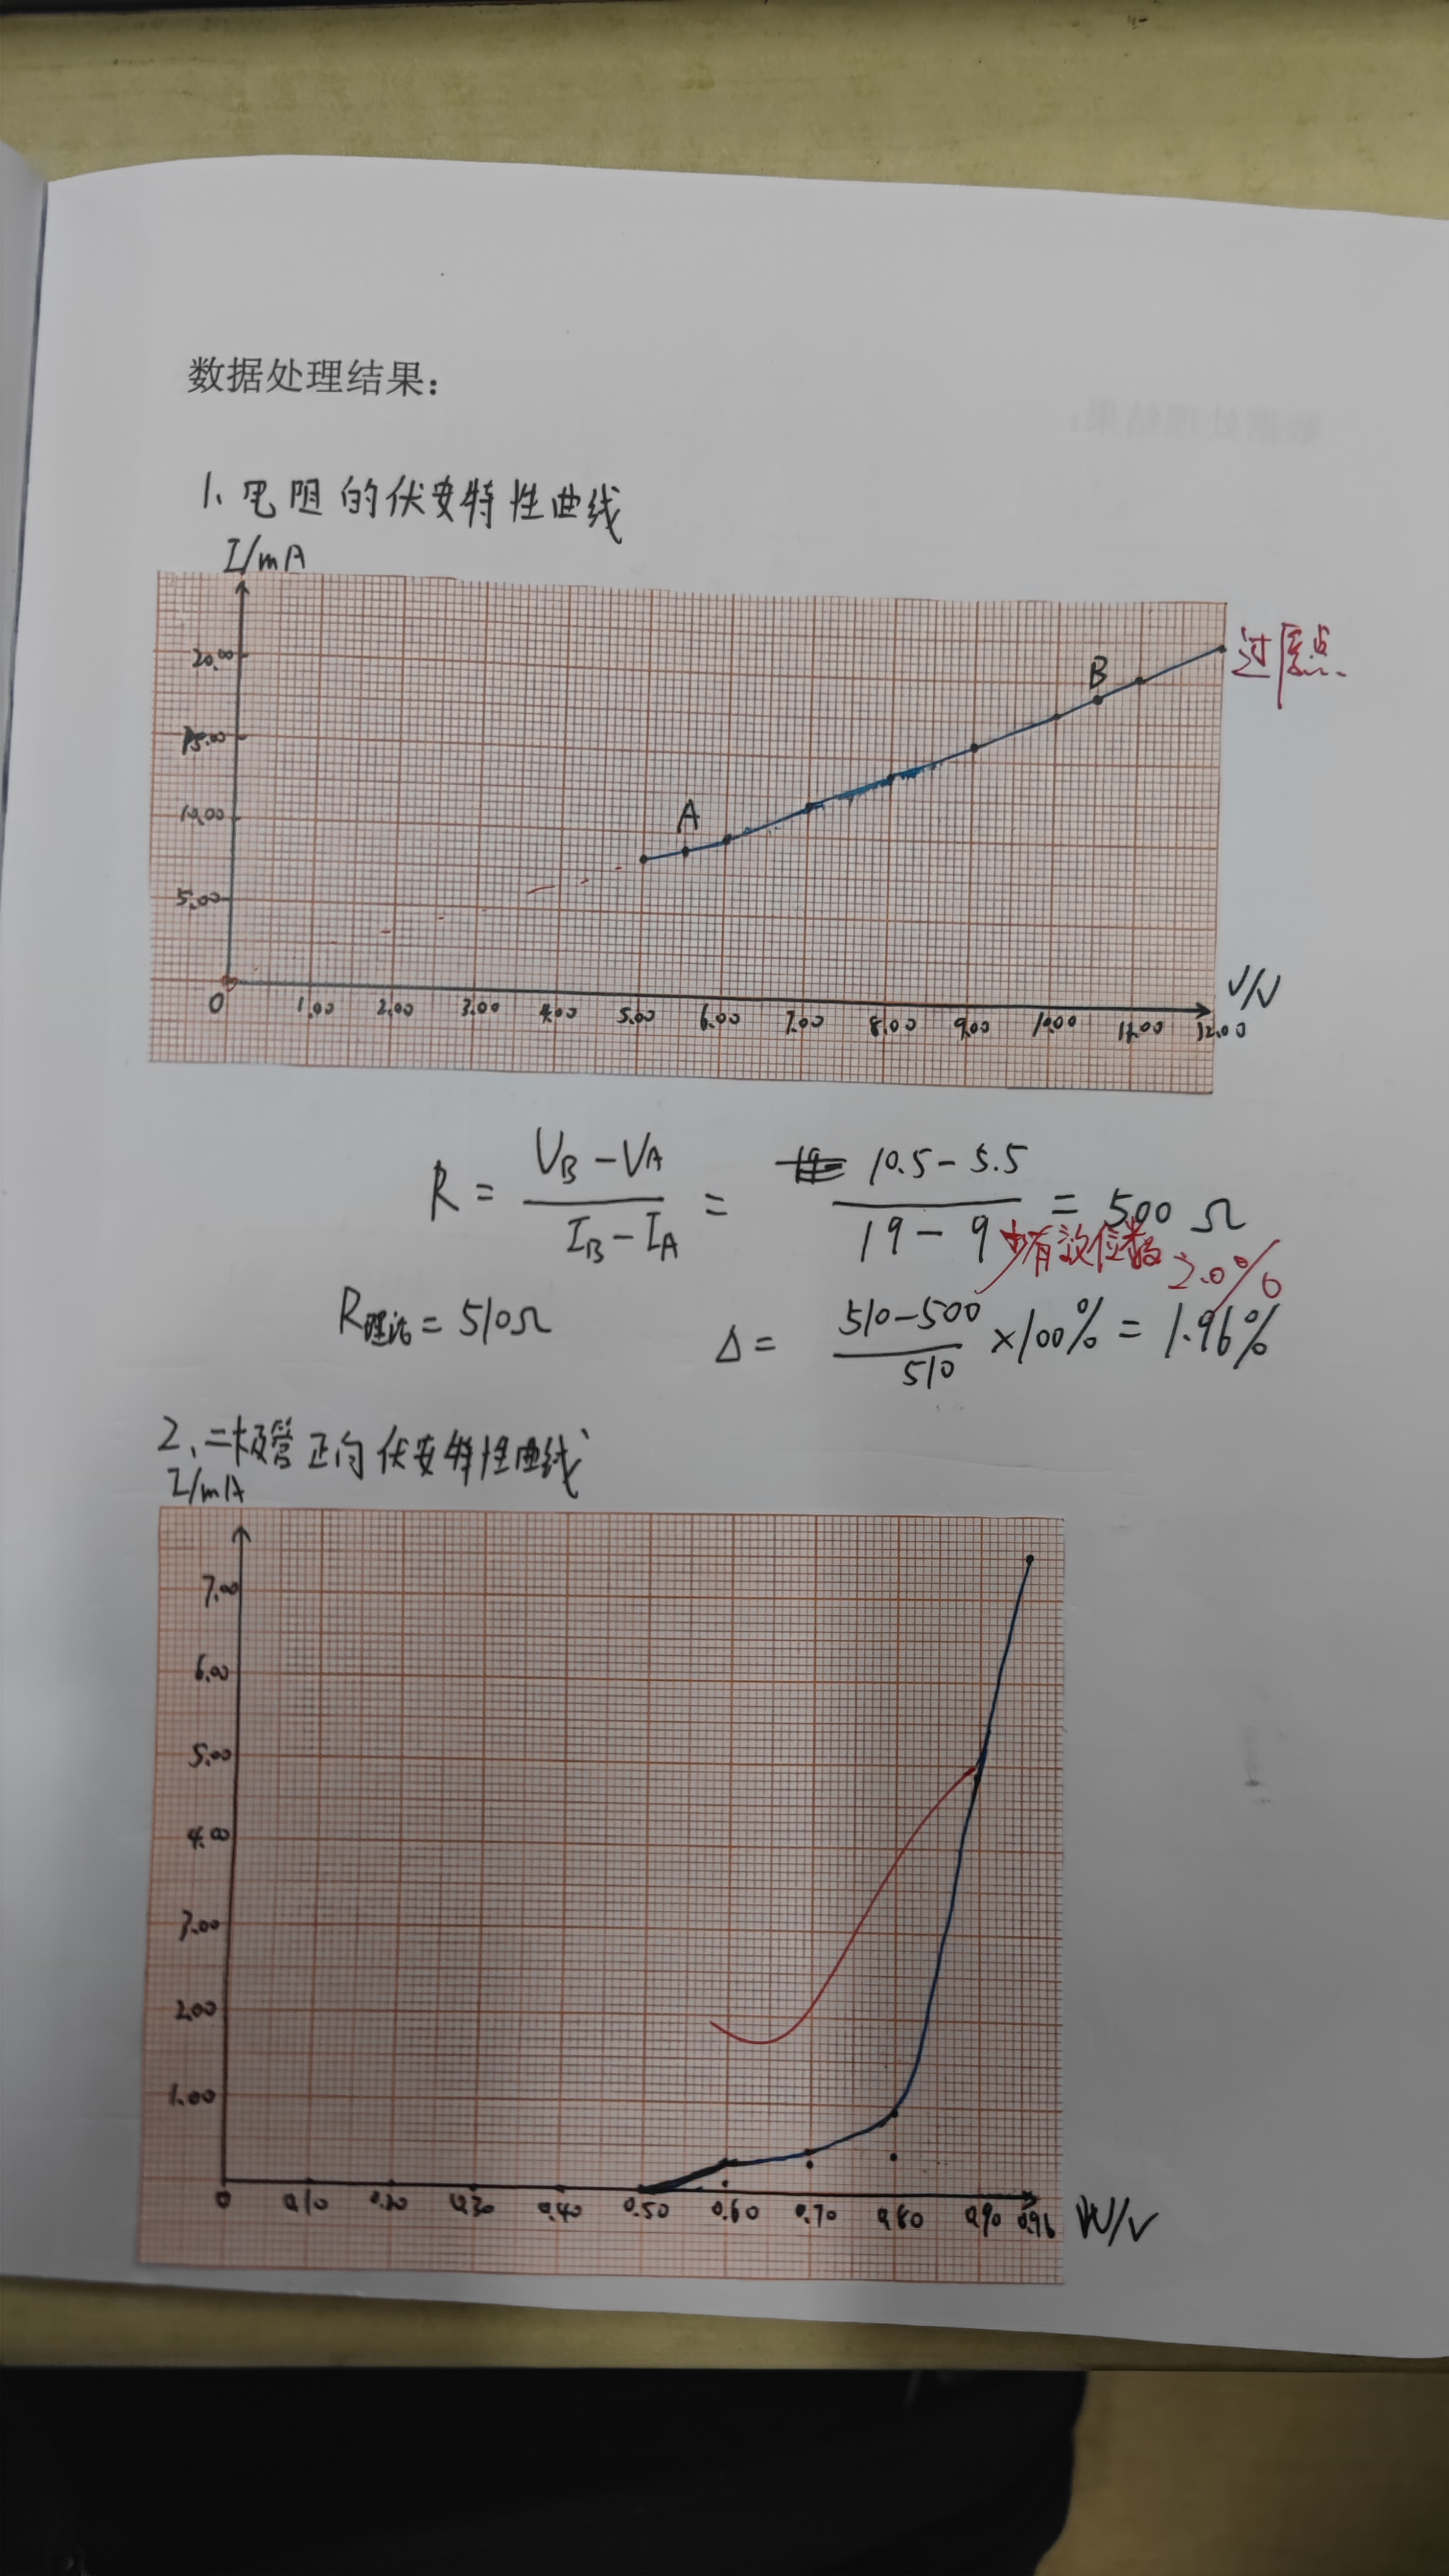 数据处理结果：
1、电阻的伏安特性曲线
I/mA
20.00
15.00
10.00
5.00
A
B
过原点
V/V
0 1.00 2.00 3.00 4.00 5.00 6.00 7.00 8.00 9.00 10.00 11.00 12.00
R = (VB - VA)/(IB - IA) = (10.5 - 5.5)/(19 - 9) = 500 Ω
少有效位数 2.0%
R理论 = 510Ω Δ = (510-500)/510 ×100% = 1.96%
2、二极管正向伏安特性曲线
I/mA
7.00
6.00
5.00
4.00
3.00
2.00
1.00
0 0.10 0.20 0.30 0.40 0.50 0.60 0.70 0.80 0.90 0.96 U/V